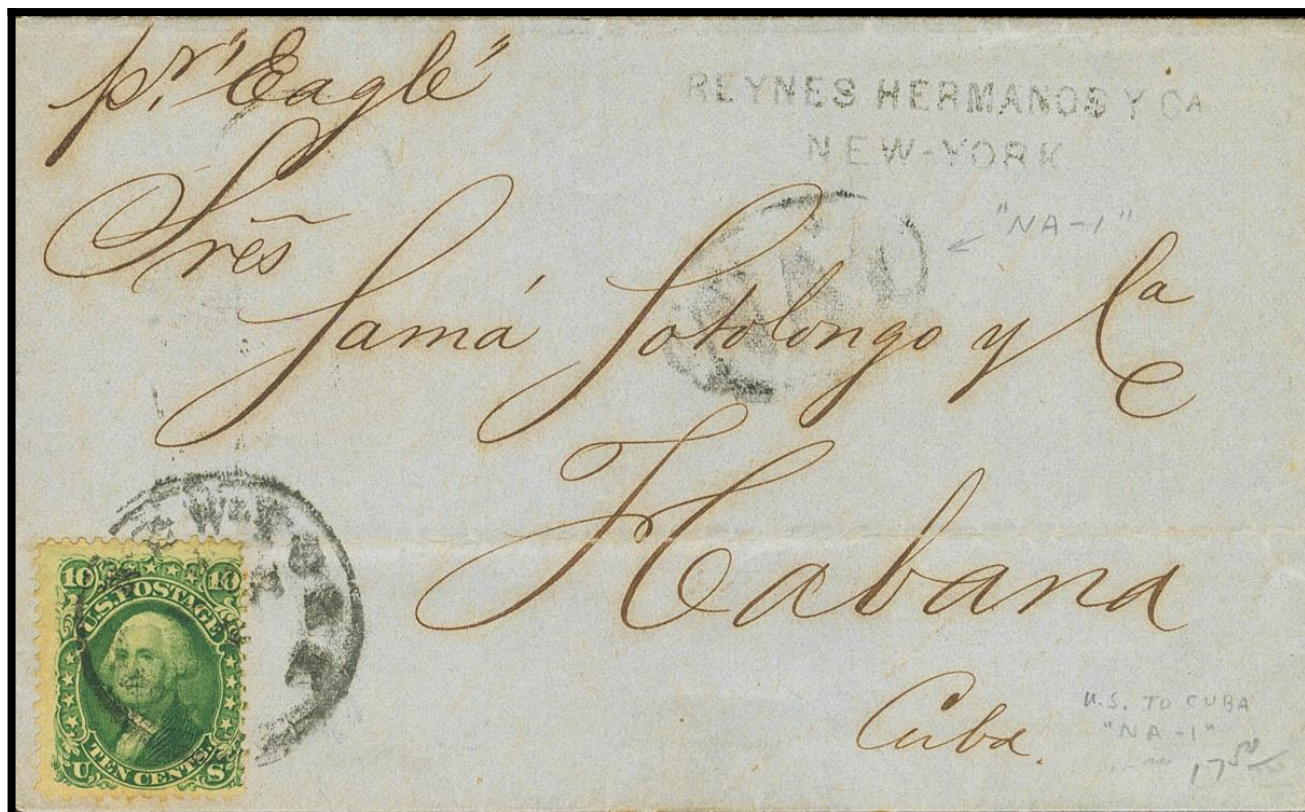 pr "Eagle"
REYNES HERMANOS Y CA
NEW-YORK
"NA-1"
Sres
Samá Sotolongo y Ca
NA1
Habana
Cuba.
NEW YORK
10 10
U.S. POSTAGE
TEN CENTS.
U S
U.S. TO CUBA
"NA-1"
17 50